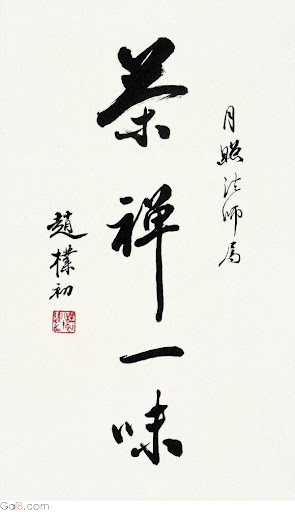 月照法师属
茶禅一味
趙樸初
Gai8.com